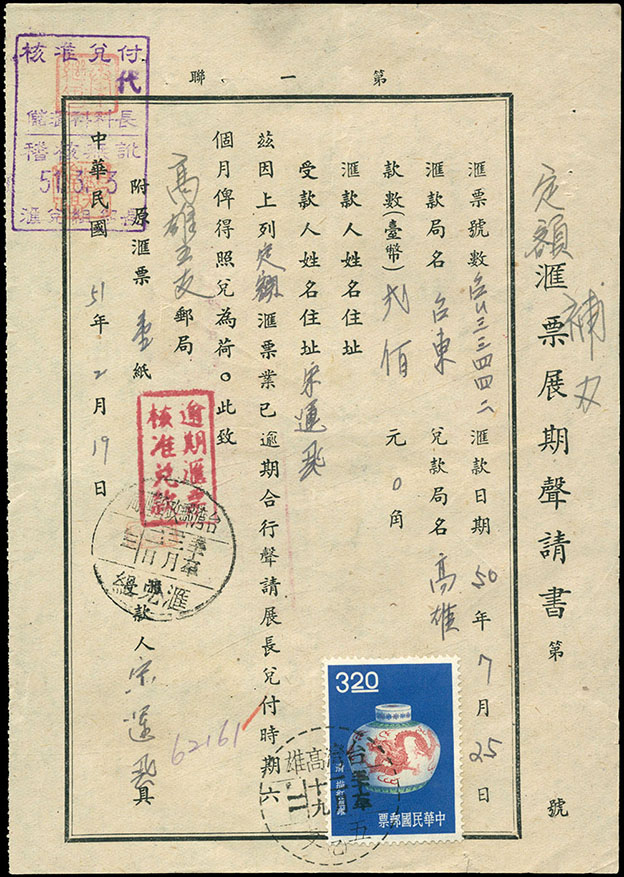 第一聯
定額匯票展期聲請書 第 號
補
匯票號數 匯款日期 50年7月25日
匯款局名 台東 兌款局名 高雄
款數(臺幣) 弍佰 元 0角
匯款人姓名住址
受款人姓名住址 宋運
茲因上列定額匯票業已逾期合行聲請展長兌付時期六
個月俾得照兌為荷。此致
高雄五支郵局
附原匯票壹紙
款人宋運 具
中華民國 51年2月19日
核准兌付
代
稽核
逾期匯票
核准兌款
匯兌組
62161
3.20
中華民國郵票
台灣高雄